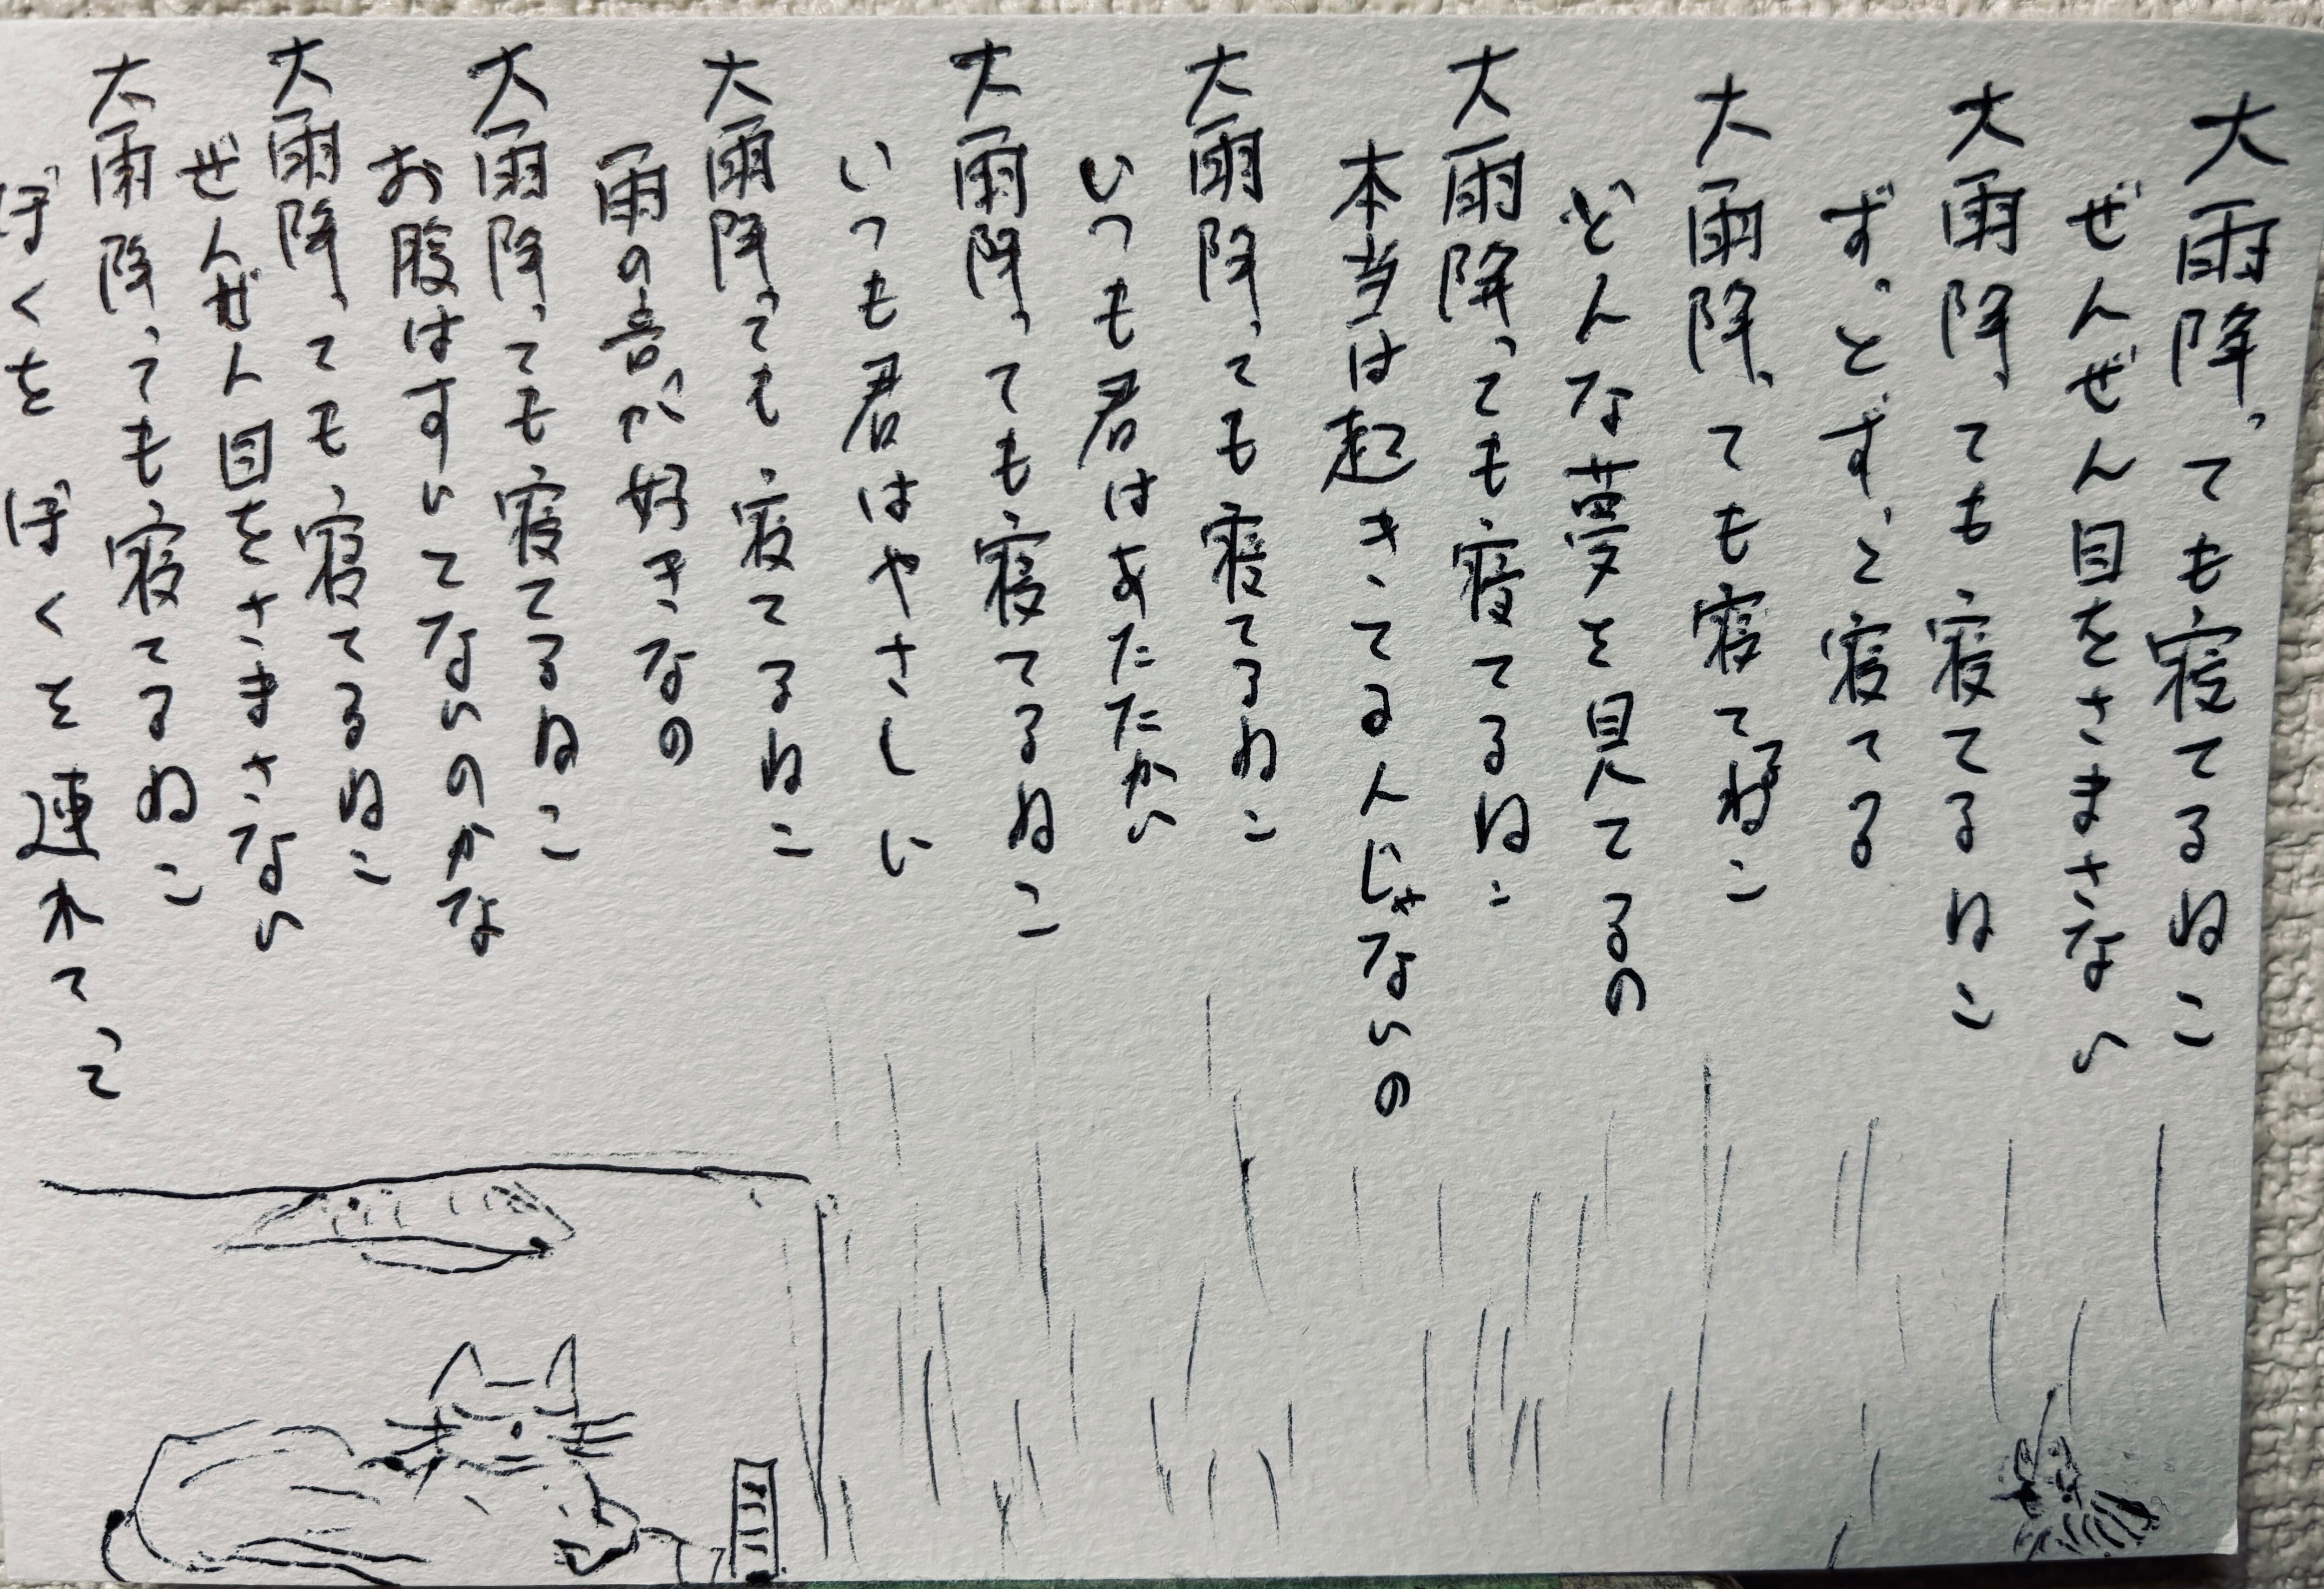 大雨降っても寝てるねこ
ぜんぜん目をさまさない
大雨降っても寝てるねこ
ずっとずっと寝てる
大雨降っても寝てるねこ
どんな夢を見てるの
大雨降っても寝てるねこ
本当は起きてるんじゃないの
大雨降っても寝てるねこ
いつも君はあたたかい
大雨降っても寝てるねこ
いつも君はやさしい
大雨降っても寝てるねこ
雨の音が好きなの
大雨降っても寝てるねこ
お腹はすいてないのかな
大雨降っても寝てるねこ
ぜんぜん目をさまさない
大雨降っても寝てるねこ
ぼくをぼくを連れてって